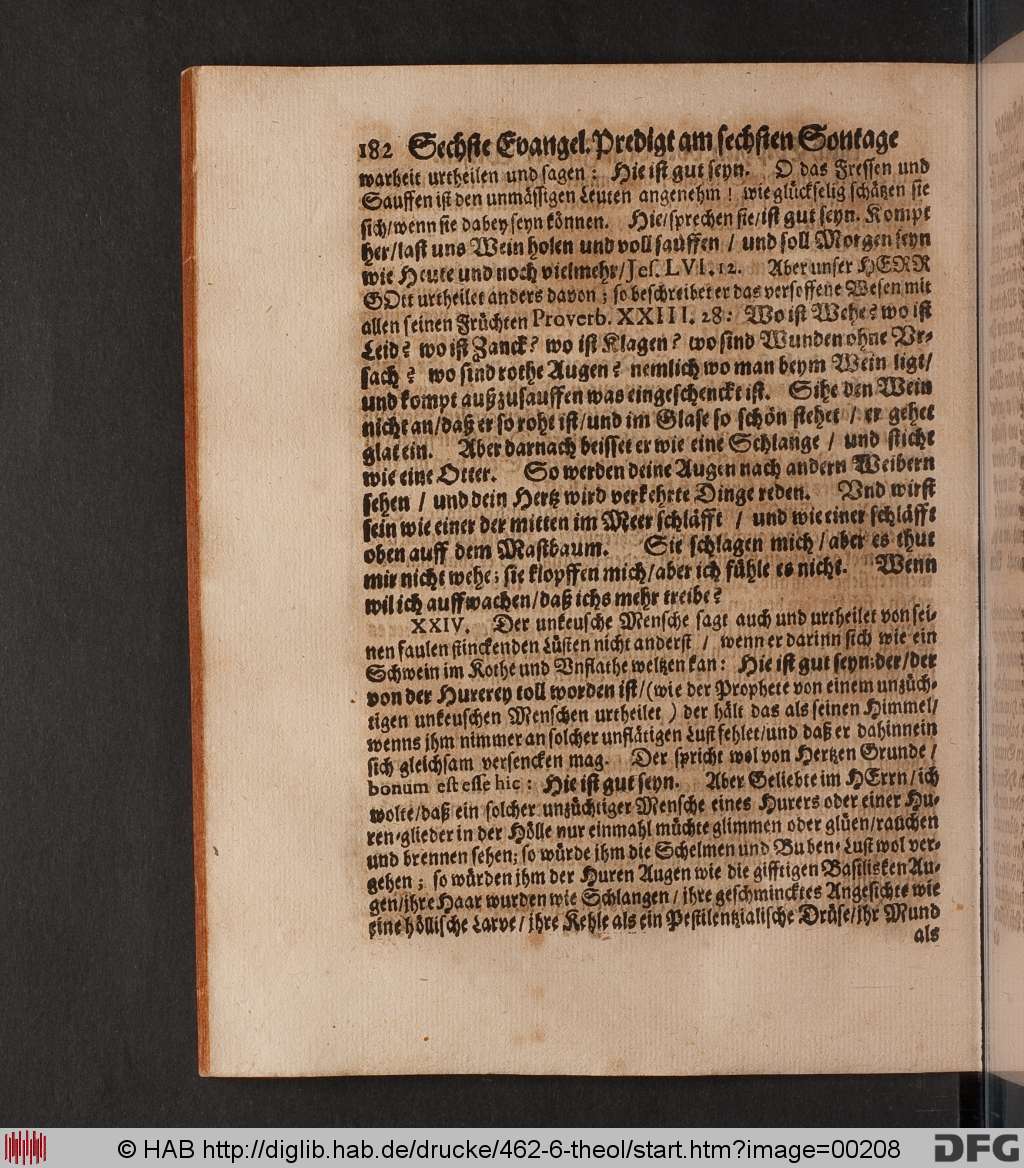 182 Sechste Evangel. Predigt am sechsten Sontage
warheit urtheilen und sagen: Hie ist gut seyn. O das Fressen und
Sauffen ist den unmässigen Leuten angenehm! wie glückselig schätzen sie
sich/wenn sie dabey seyn können. Hie/sprechen sie/ist gut seyn. Kompt
her/last uns Wein holen und voll sauffen / und soll Morgen seyn
wie Heute und noch vielmehr/Jes. LVI. 12. Aber unser HERR
GOtt urtheilet anders davon; so beschreibet er das versoffene Wesen mit
allen seinen Früchten Proverb. XXIII. 28: Wo ist Wehe? wo ist
Leid? wo ist Zanck? wo ist Klagen? wo sind Wunden ohne Vr-
sach? wo sind rothe Augen? nemlich wo man beym Wein ligt/
und kompt außzusauffen was eingeschenckt ist. Sihe den Wein
nicht an/daß er so roht ist/und im Glase so schön stehet / er gehet
glat ein. Aber darnach beisset er wie eine Schlange / und sticht
wie eine Otter. So werden deine Augen nach andern Weibern
sehen / und dein Hertz wird verkehrte Dinge reden. Vnd wirst
sein wie einer der mitten im Meer schläfft / und wie einer schläfft
oben auff dem Mastbaum. Sie schlagen mich/aber es thut
mir nicht wehe; sie klopffen mich/aber ich fühle es nicht. Wenn
wil ich auffwachen/daß ichs mehr treibe?
XXIV. Der unkeusche Mensche sagt auch und urtheilet von sei-
nen faulen stinckenden Lüsten nicht anderst / wenn er darinn sich wie ein
Schwein im Kothe und Vnflathe weltzen kan: Hie ist gut seyn; der/der
von der Hurerey toll worden ist/(wie der Prophete von einem unzüch-
tigen unkeuschen Menschen urtheilet) der hält das als seinen Himmel/
wenns jhm nimmer an solcher unflätigen Lust fehlet/und daß er dahinnein
sich gleichsam versencken mag. Der spricht wol von Hertzen Grunde/
bonum est esse hic: Hie ist gut seyn. Aber Geliebte im HErrn/ich
wolte/daß ein solcher unzüchtiger Mensche eines Hurers oder einer Hu-
ren-glieder in der Hölle nur einmahl müchte glimmen oder glüen/rauchen
und brennen sehen; so würde jhm die Schelmen und Buben-Lust wol ver-
gehen; so würden jhm der Huren Augen wie die gifftigen Basilisken Au-
gen/jhre Haar wurden wie Schlangen / jhre geschmincktes Angesichte wie
eine höllische Larve / jhre Kehle als ein Pestilentzialische Drüse/jhr Mund
als
© HAB http://diglib.hab.de/drucke/462-6-theol/start.htm?image=00208
DFG